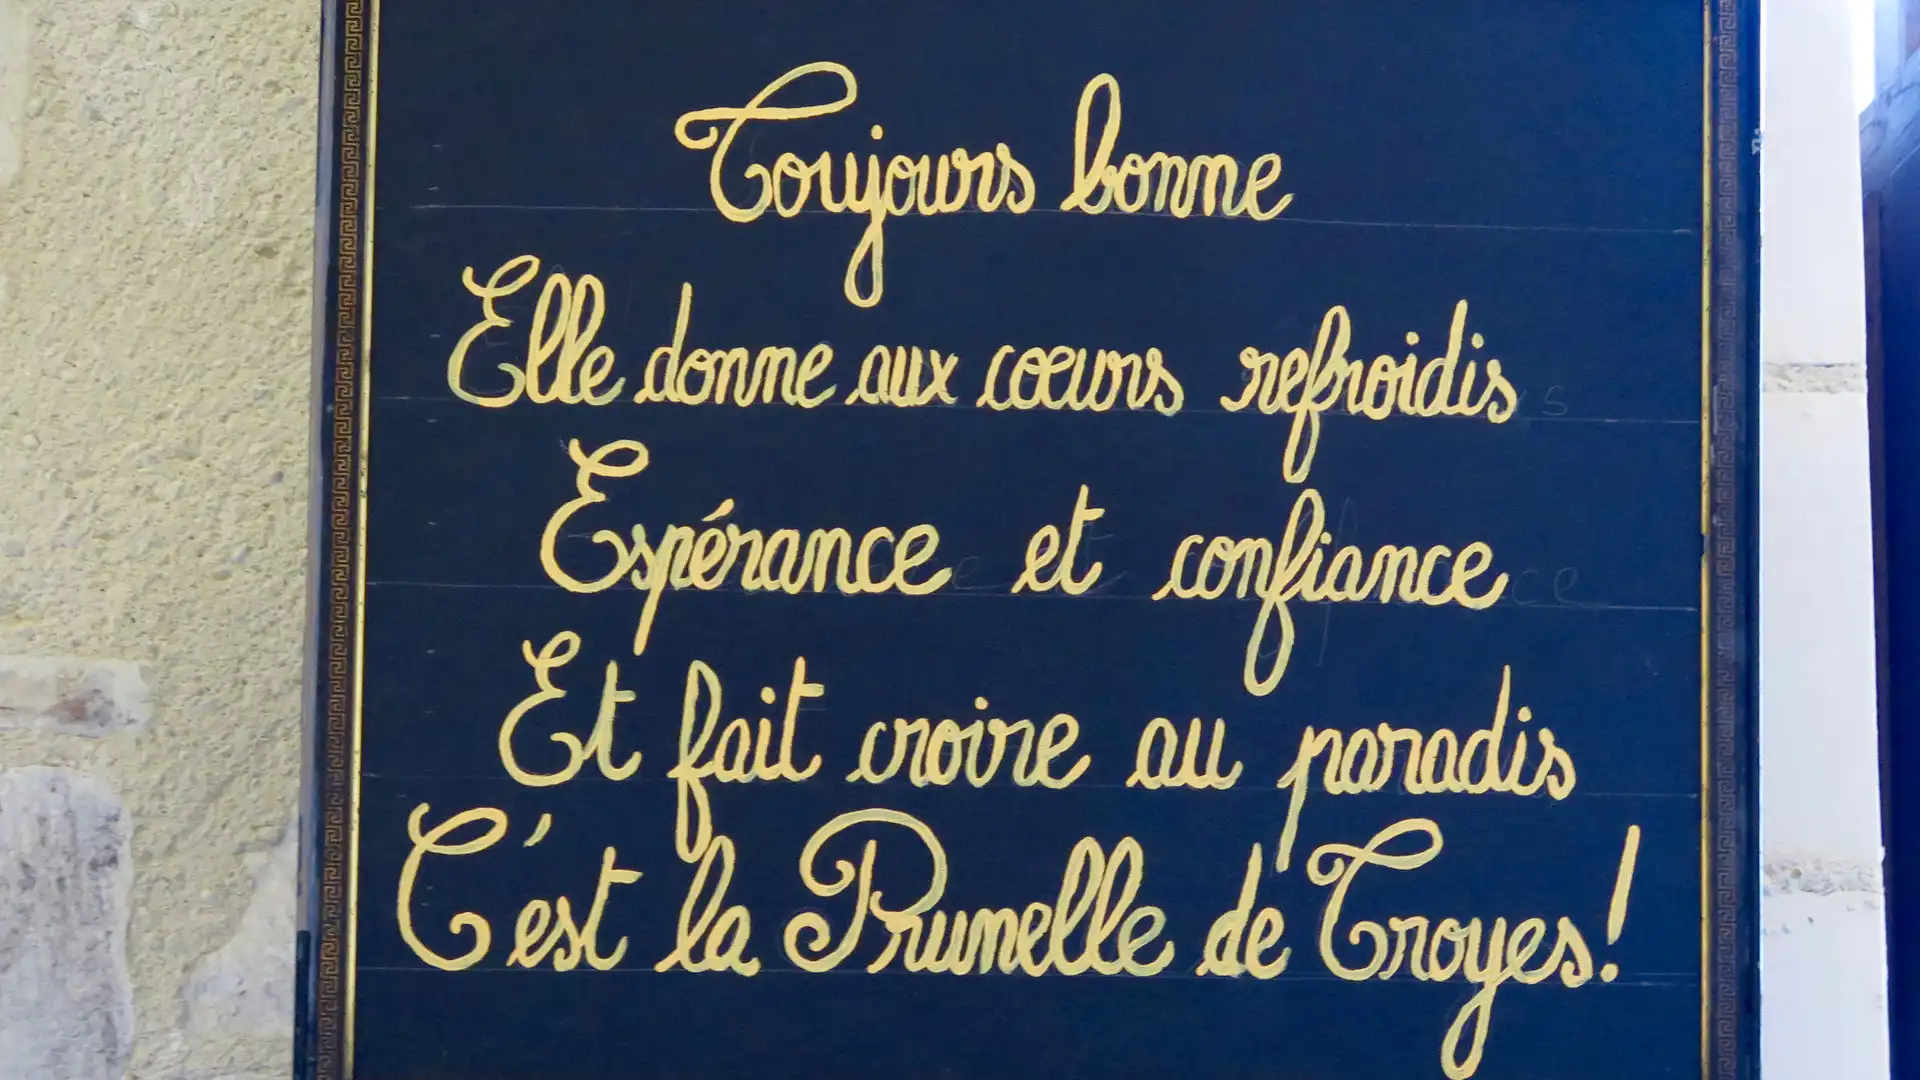 Toujours bonne
Elle donne aux cœurs refroidis
Espérance et confiance
Et fait croire au paradis
C'est la Prunelle de Troyes!